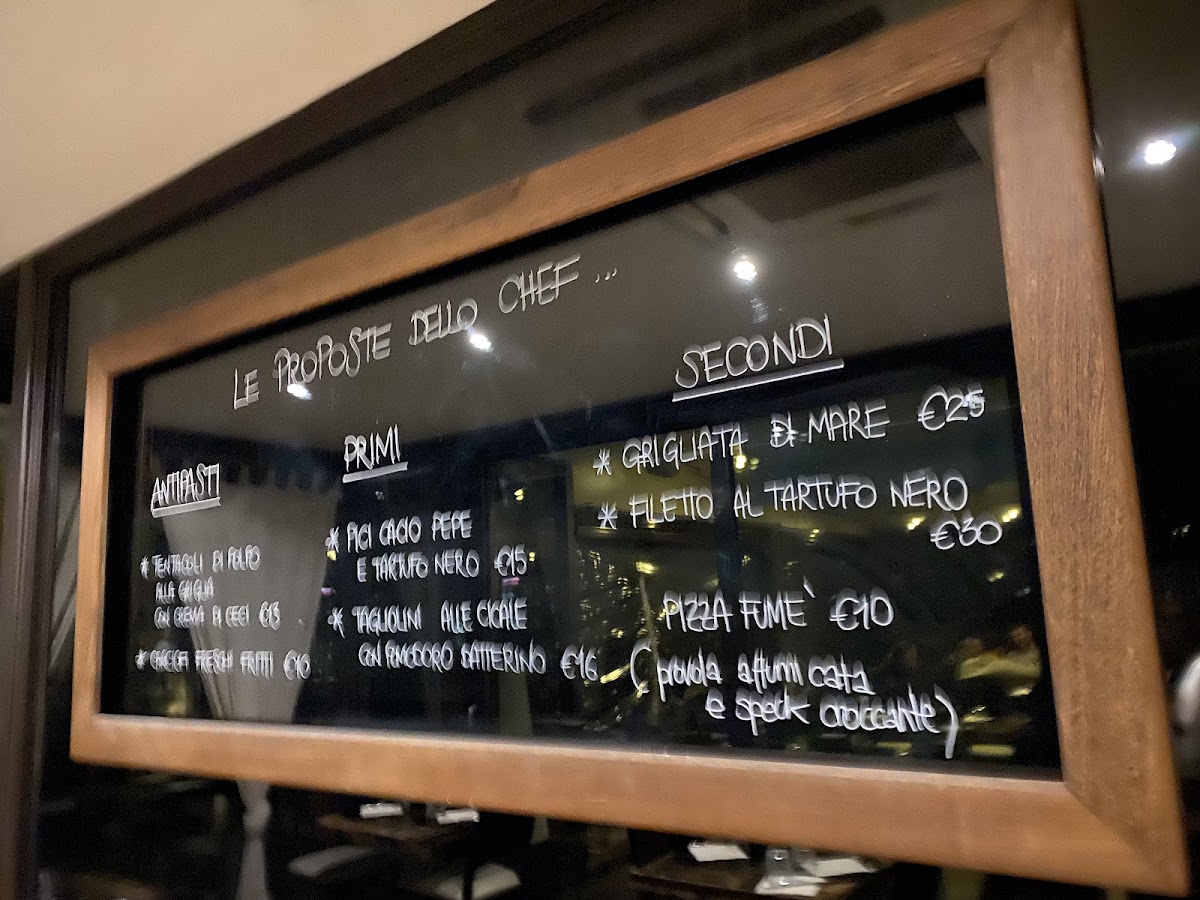 LE PROPOSTE DELLO CHEF ...
ANTIPASTI
* TENTACOLI DI POLPO
ALLA GRIGLIA
CON CREMA DI CECI €13
* CARCIOFI FRESCHI FRITTI €10
PRIMI
* PICI CACIO PEPE
E TARTUFO NERO €15
* TAGLIOLINI ALLE CICALE
CON POMODORO DATTERINO €16
SECONDI
* GRIGLIATA DI MARE €25
* FILETTO AL TARTUFO NERO
€30
PIZZA FUMÈ €10
(provola affumicata
e speck croccante)